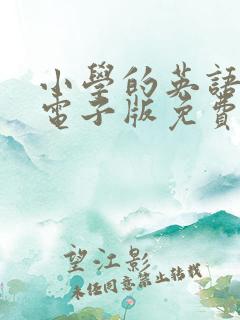 小學的英語
電子版免費
望江影
未经同意禁止转载